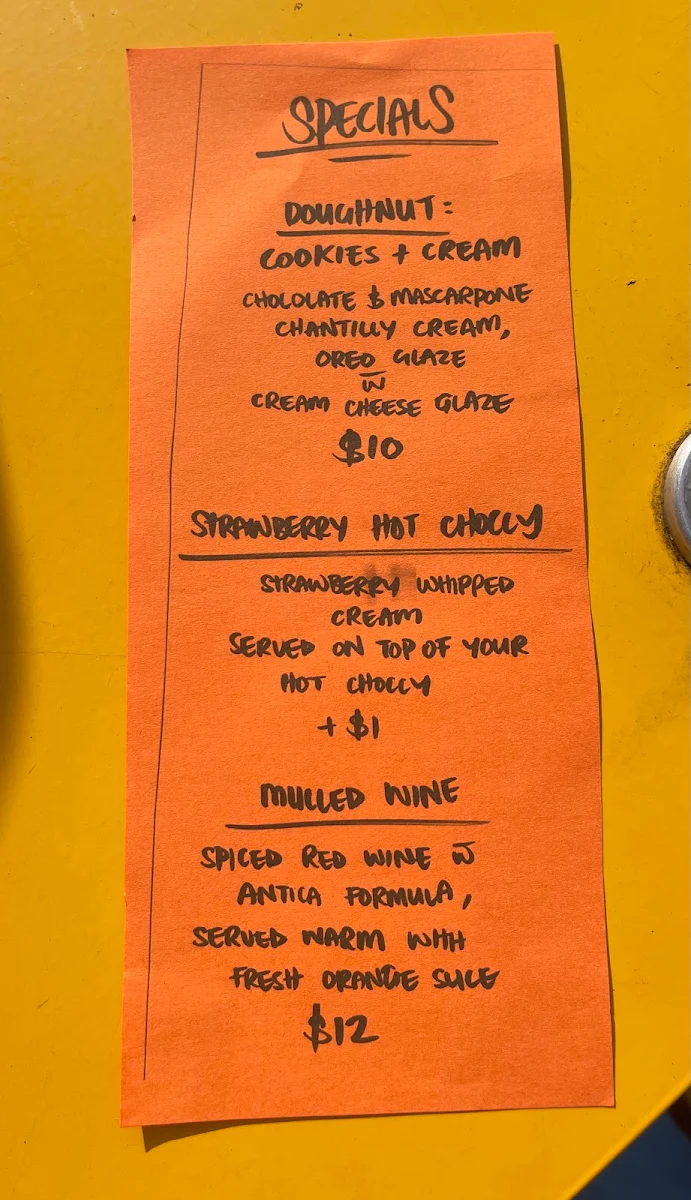 SPECIALS
DOUGHNUT:
COOKIES + CREAM
CHOLOLATE & MASCARPONE
CHANTILLY CREAM,
OREO GLAZE
W
CREAM CHEESE GLAZE
$10
STRAWBERRY HOT CHOCCY
STRAWBERRY WHIPPED
CREAM
SERVED ON TOP OF YOUR
HOT CHOCCY
+ $1
MULLED WINE
SPICED RED WINE W
ANTICA FORMULA,
SERVED WARM WITH
FRESH ORANGE SLICE
$12